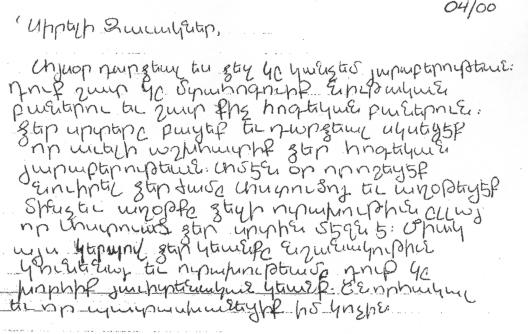 04/00
Սիրելի Զաւակներ,
Այսօր դարձեալ ես ձեզ կը կանչեմ յարաբերութեան:
Դուք շատ կը մտահոգուիք նիւթական
բաներու եւ շատ քիչ հոգեկան բաներուն:
Ձեր սրտերը բացէք եւ դարձեալ սկսեցէք
որ աւելի աշխատիք ձեր հոգեկան
յարաբերութեան: Ամէն օր որոշեցէք
նուիրել ձեր ժամը Աստուծոյ եւ աղօթեցէք
մինչեւ աղօթքը ձեզի ուրախութիւն ըլլայ
որ Աստուած ձեր սրտին մէջն է: Միայն
այս կերպով ձեր կեանքը նշանակութիւն
կ'ունենայ եւ ուրախութեամբ դուք կը
խորհիք յաւիտենական կեանք: Շնորհակալ
եւ որ պատասխանեցիք իմ կոչին: